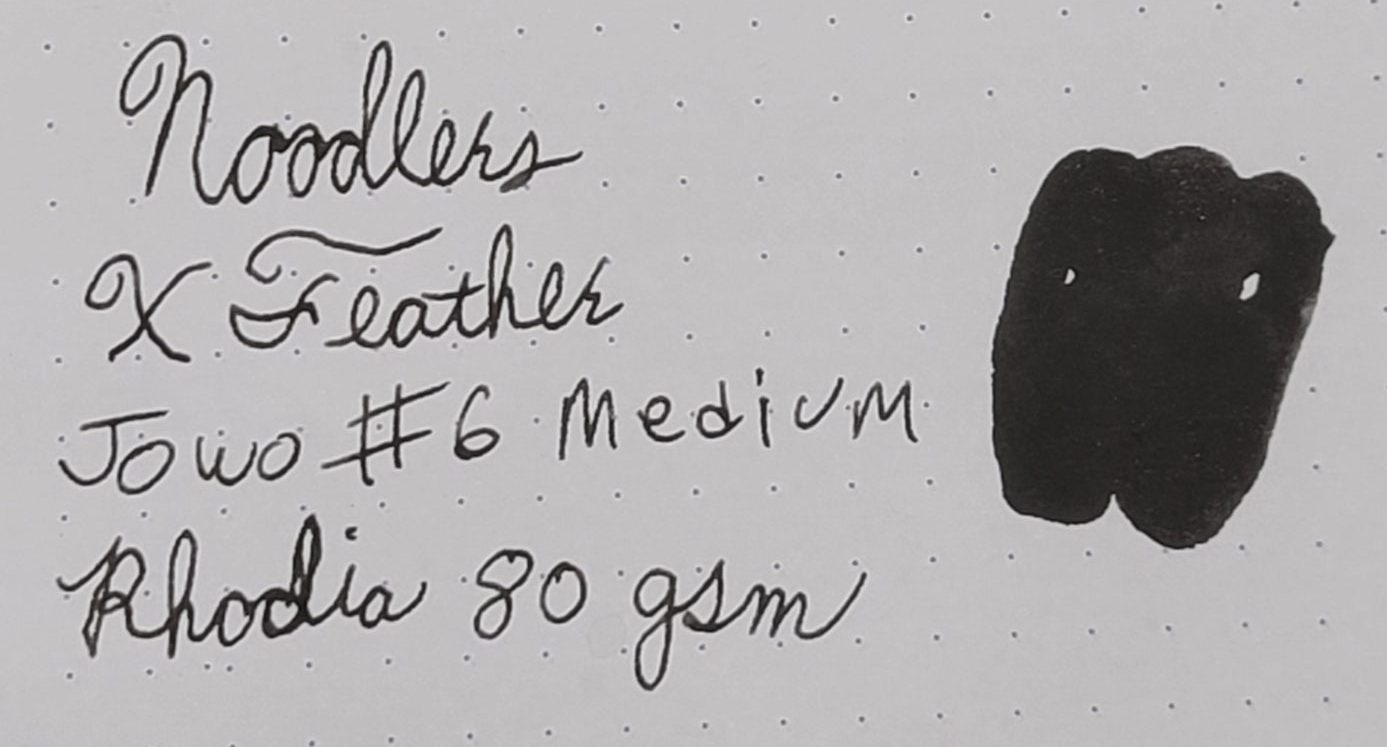 Noodlers
X Feather
Jowo #6 Medium
Rhodia 80 gsm